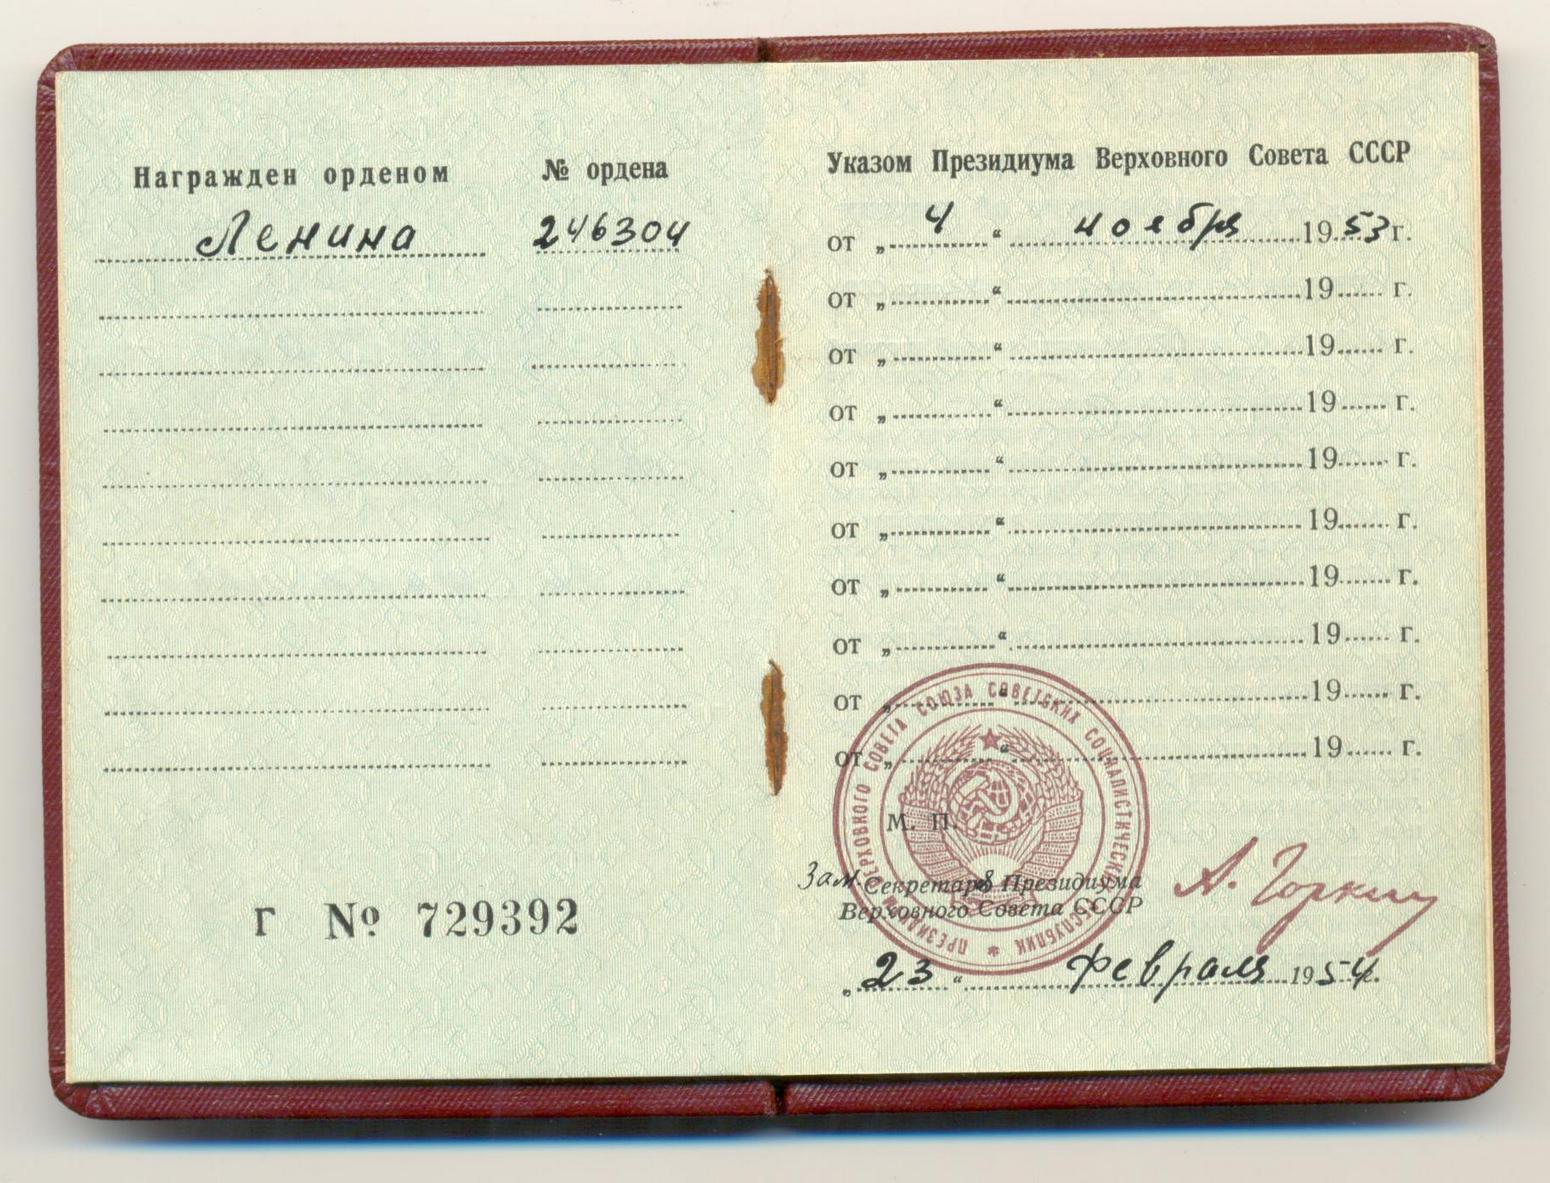 Награжден орденом № ордена
Ленина 246304
Г № 729392
Указом Президиума Верховного Совета СССР
от „ 4 “ ноября 1953 г.
от „ “ 19 г.
от „ “ 19 г.
от „ “ 19 г.
от „ “ 19 г.
от „ “ 19 г.
от „ “ 19 г.
от „ “ 19 г.
от „ “ 19 г.
от „ “ 19 г.
М. П.
ПРЕЗИДИУМ ВЕРХОВНОГО СОВЕТА СОЮЗА СОВЕТСКИХ СОЦИАЛИСТИЧЕСКИХ РЕСПУБЛИК
Зам. Секретаря Президиума
Верховного Совета СССР
А. Горкин
„ 23 “ февраля 1954 г.